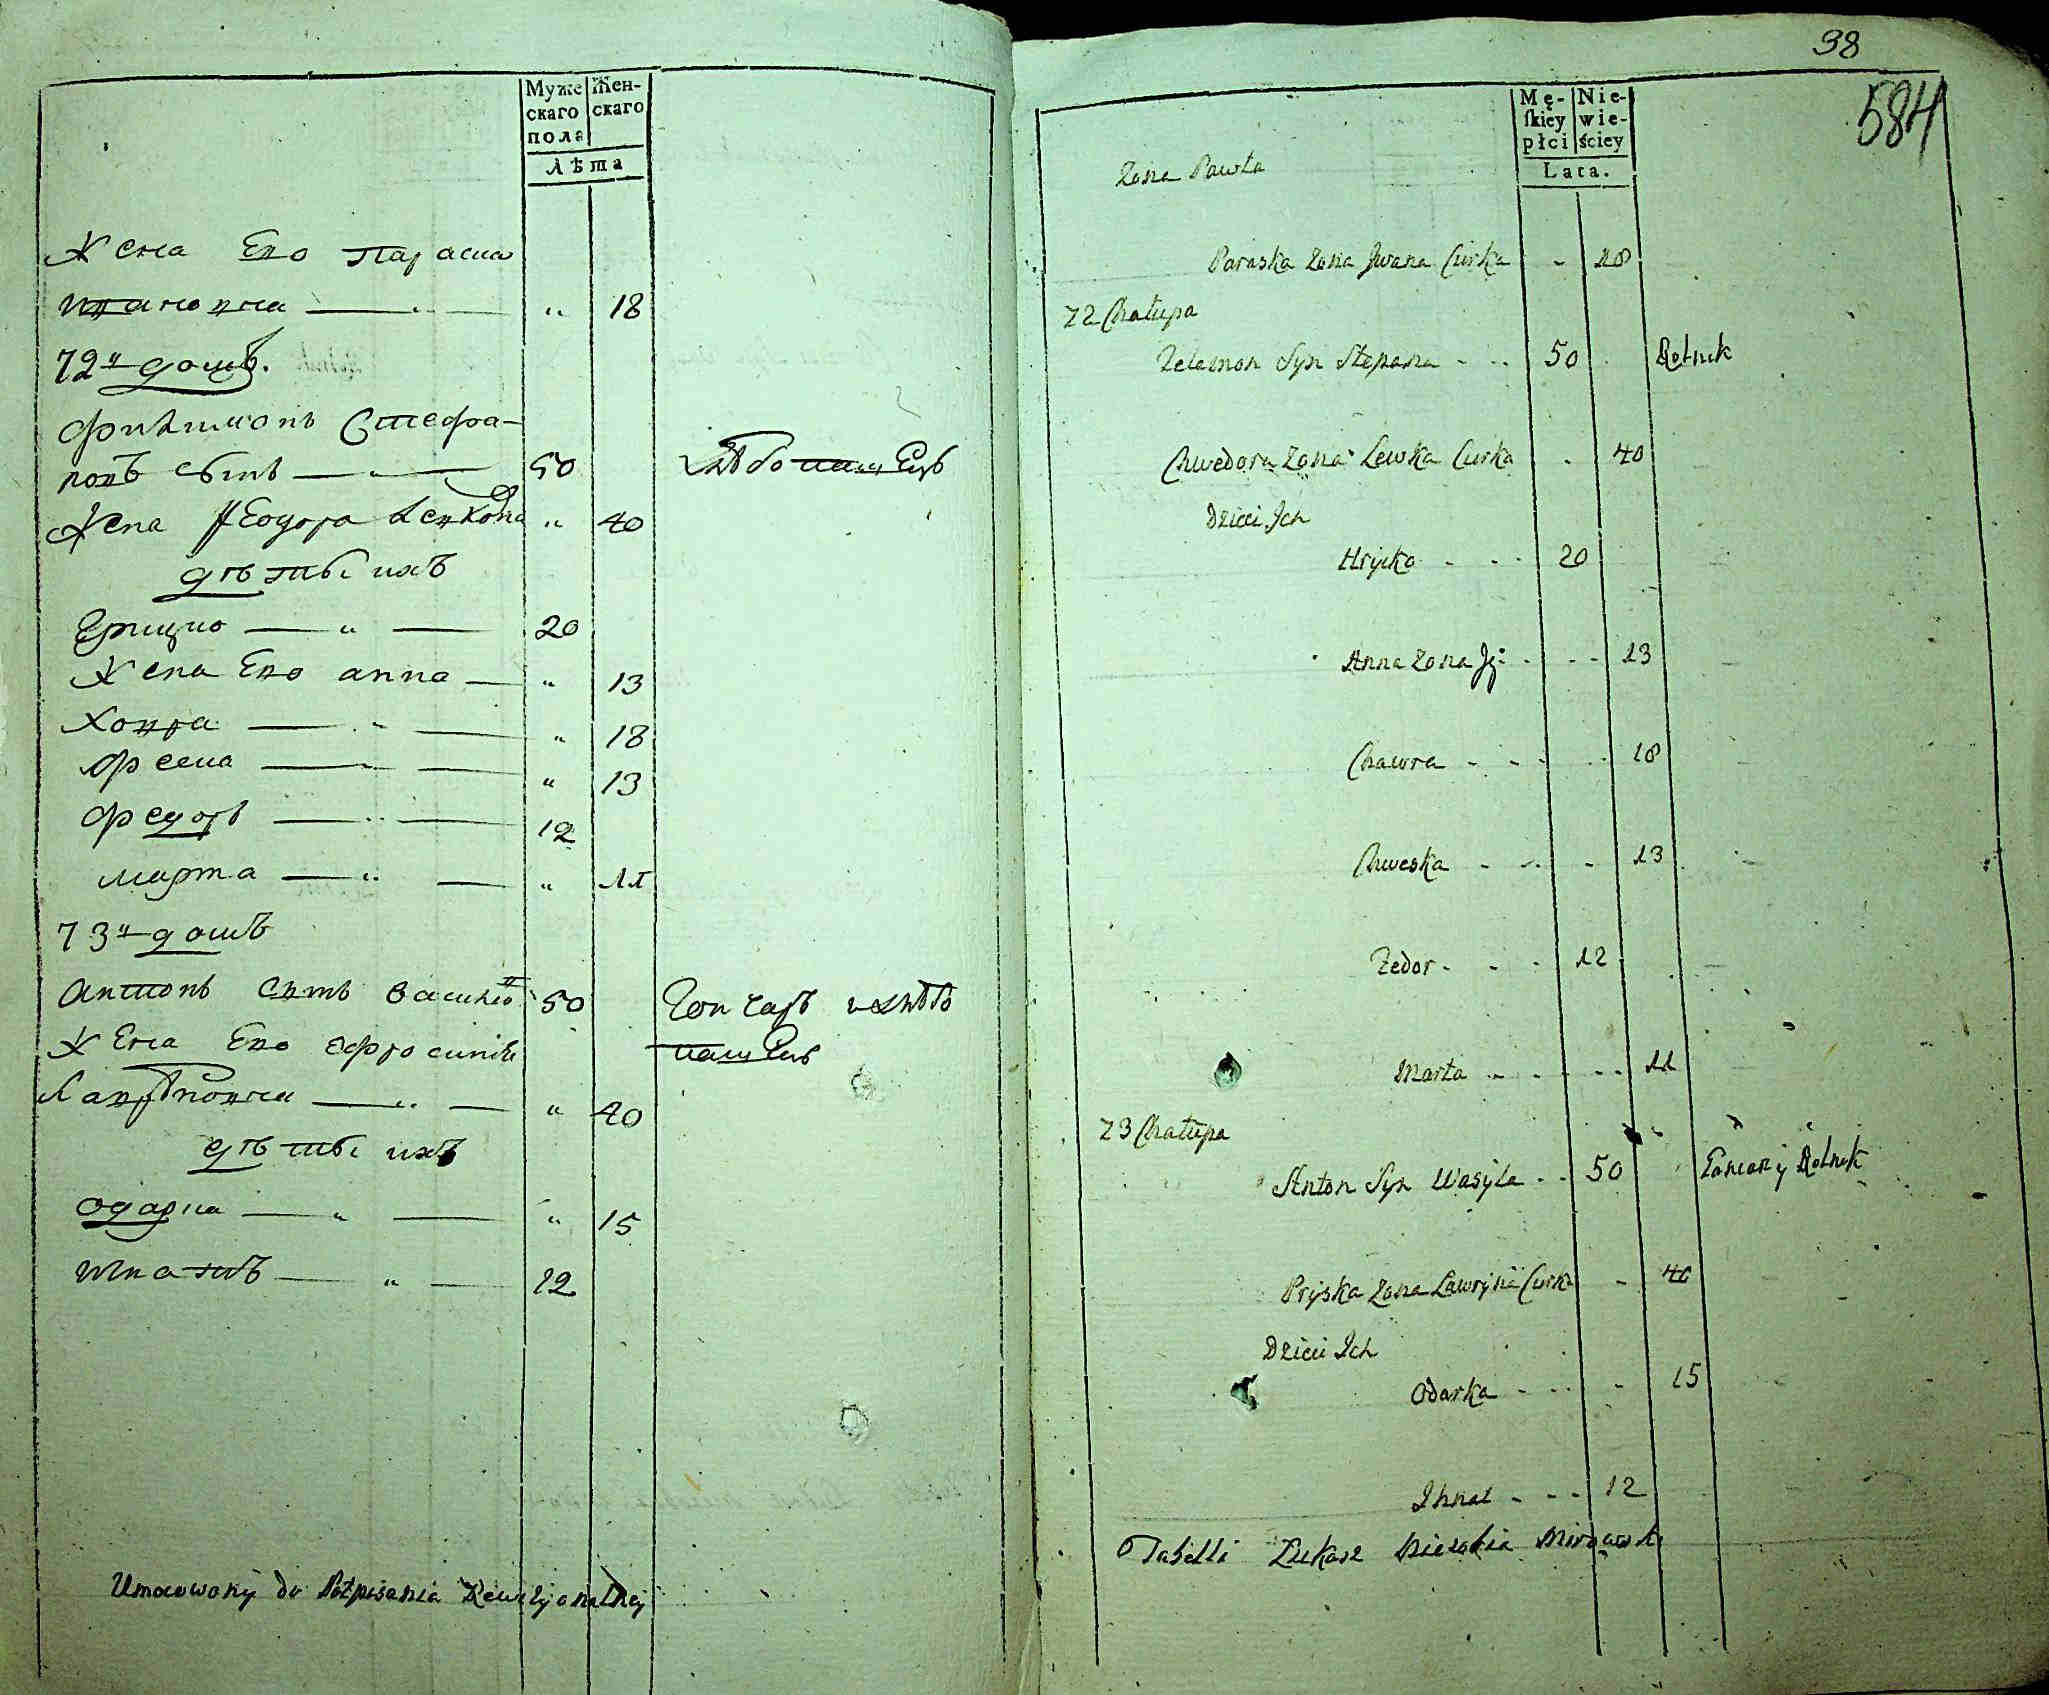 Муже
скаго
пола
Жен-
скаго
Лѣта
Жена Его Параска
Ивановна 18
72й домъ.
Филимонъ Стефа-
новъ сынъ 50 хлѣбопашецъ
Жена Ѳеодора Левкова 40
дѣты ихъ
Грицко 20
Жена Его анна 13
Ховра 18
Феска 13
Федоръ 12
марта 11
73й домъ
антонъ сынъ василіо 50 Гончаръ и хлѣбо
Жена Его Эфросиніи пашецъ
Лаврѣновна 40
дѣты ихъ
одарка 15
Игнатъ 12
Umocowany do Podpisania Rewizyonalney
98
584
Mę-
skiey
płci
Nie-
wie-
ściey
Lata.
Zona Pawła
Paraska Zona Jwana Curka 18
72 Chałupa
Felemon Syn Stepana 50 Rolnik
Chwedora Zona Lewka Curka 40
Dzieci Ich
Hrycko 20
Anna Zona Jº 13
Chawra 18
Chweska 13
Fedor 12
Marta 11
73 Chałupa
Anton Syn Wasyla 50 Gancarz y Rolnik
Pryska Zona Lawryna Curka 40
Dzieci Ich
Odarka 15
Ihnat 12
Tabelli Łukasz